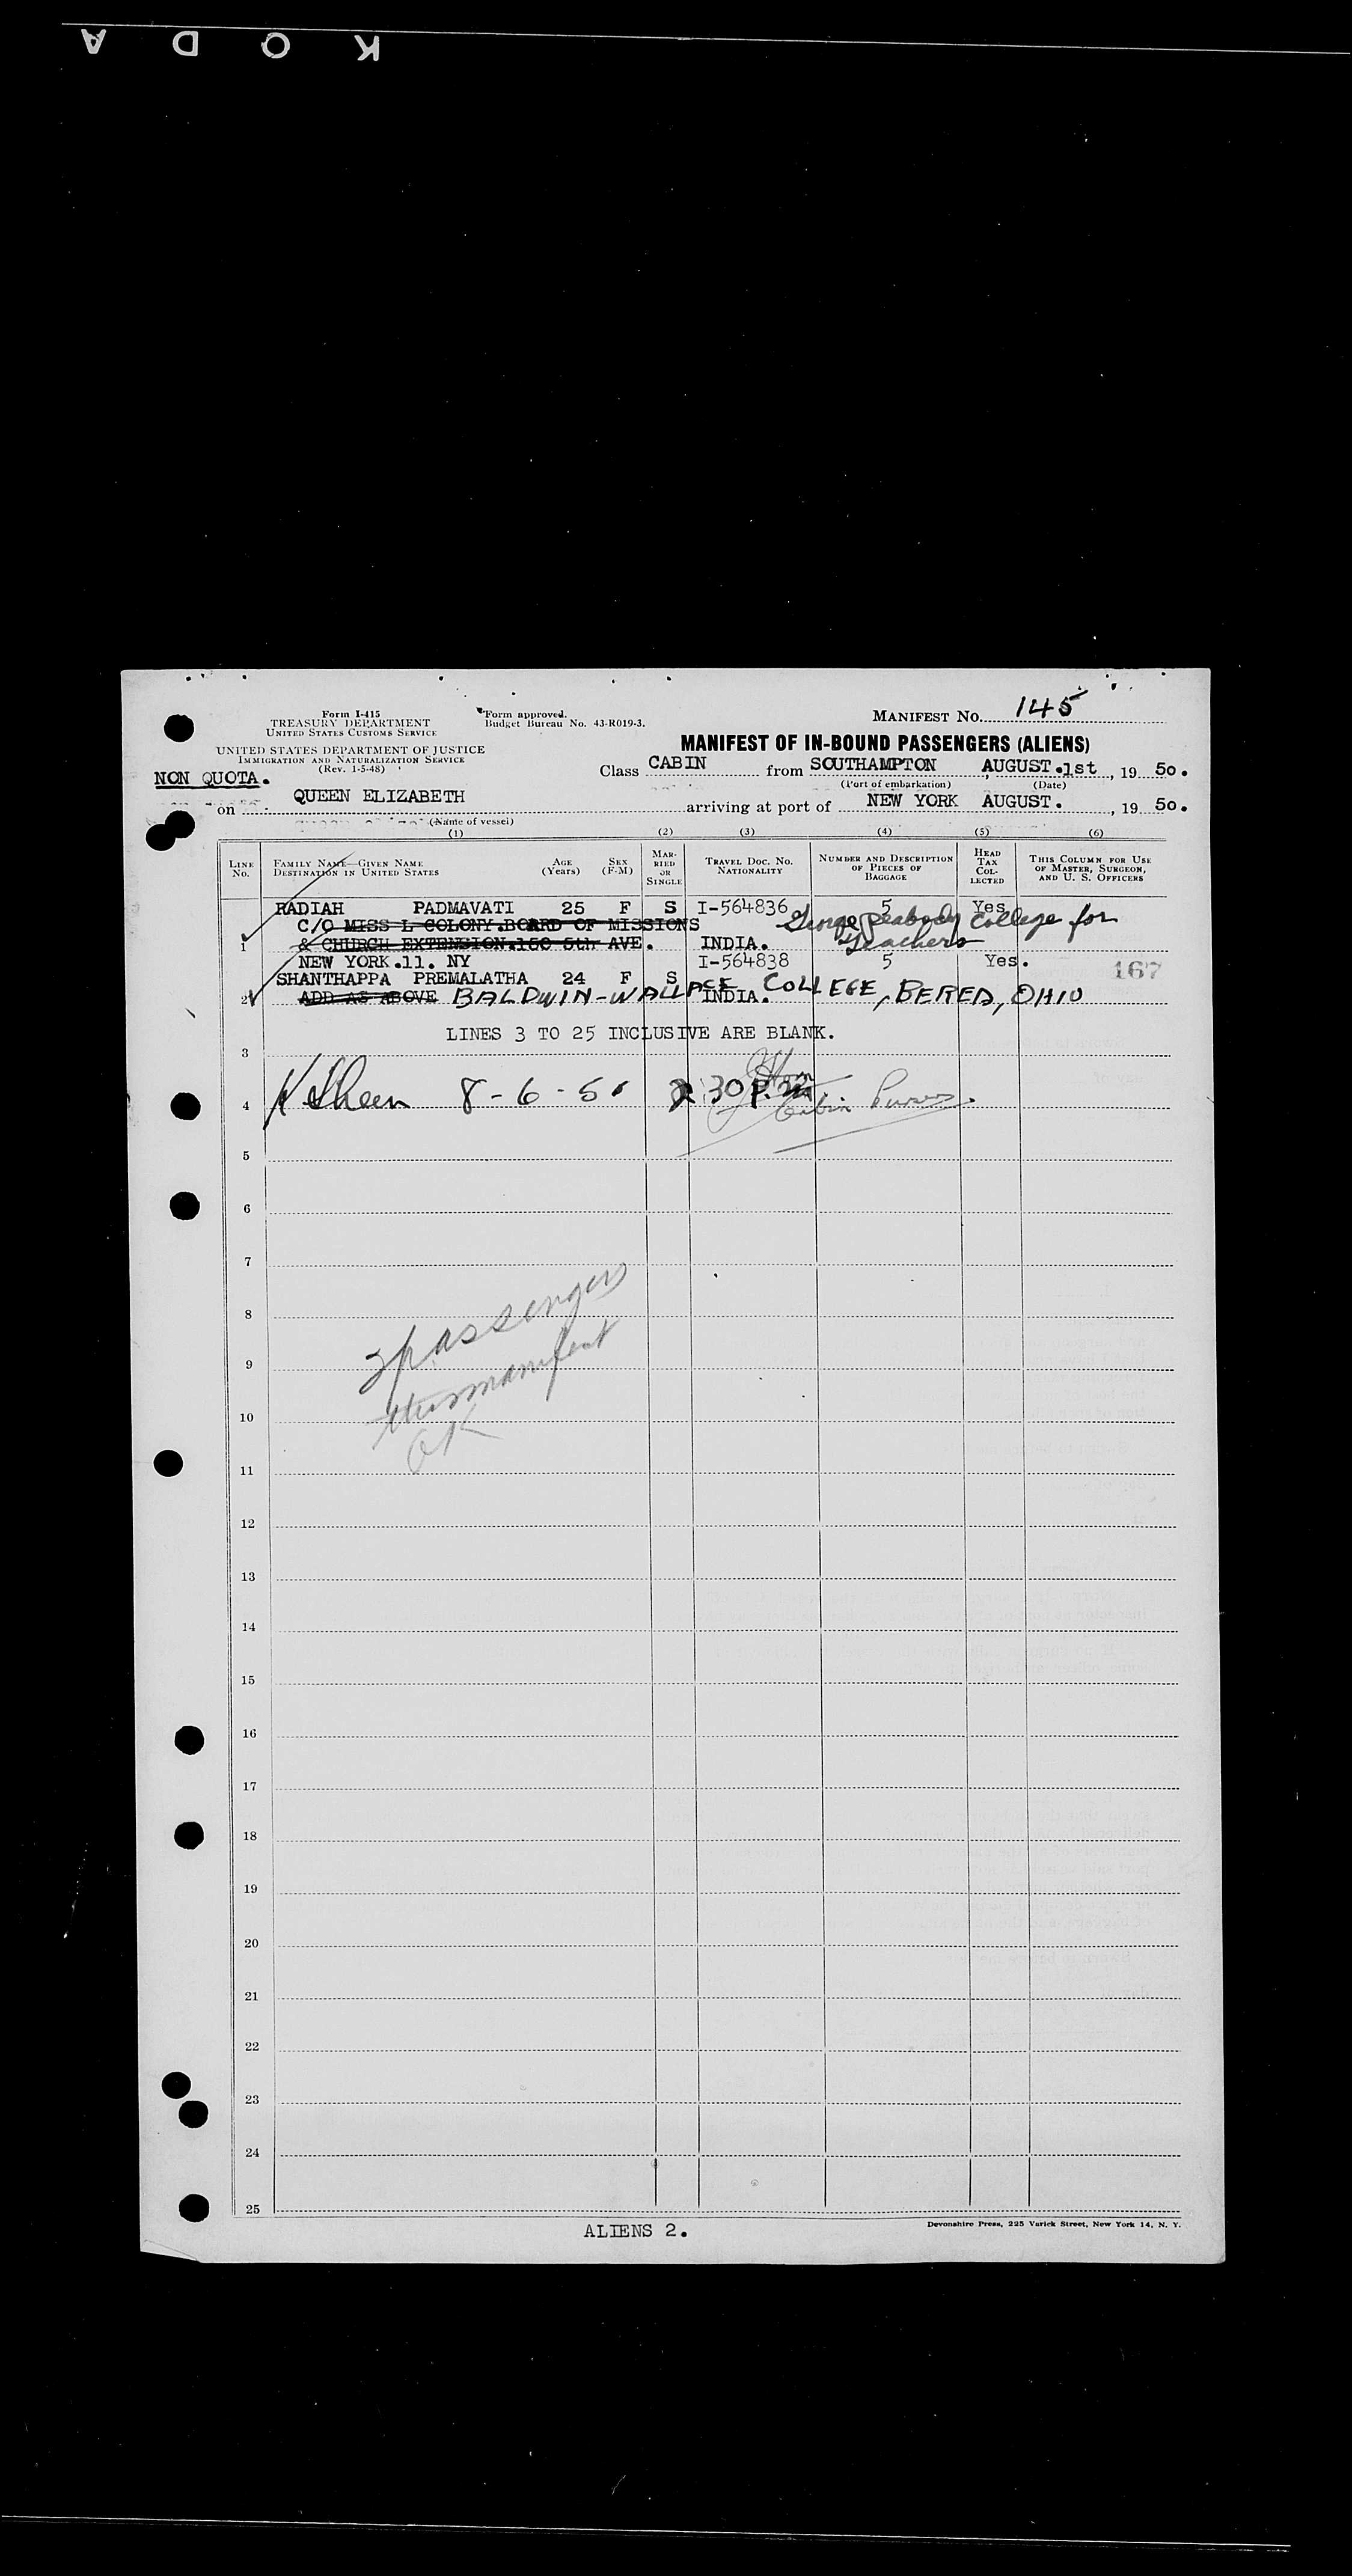 KODAK
Form I-415
TREASURY DEPARTMENT
UNITED STATES CUSTOMS SERVICE
Form approved.
Budget Bureau No. 43-R019-3.
MANIFEST NO. 145
UNITED STATES DEPARTMENT OF JUSTICE
IMMIGRATION AND NATURALIZATION SERVICE
(Rev. 1-5-48)
MANIFEST OF IN-BOUND PASSENGERS (ALIENS)
NON QUOTA.
Class CABIN from SOUTHAMPTON, AUGUST.1st, 19 50.
(Port of embarkation) (Date)
on QUEEN ELIZABETH arriving at port of NEW YORK AUGUST., 19 50.
(Name of vessel)
(1) (2) (3) (4) (5) (6)
LINE No. FAMILY NAME—GIVEN NAME DESTINATION IN UNITED STATES AGE (Years) SEX (F-M) MARRIED OR SINGLE TRAVEL DOC. NO. NATIONALITY NUMBER AND DESCRIPTION OF PIECES OF BAGGAGE HEAD TAX COLLECTED THIS COLUMN FOR USE OF MASTER, SURGEON, AND U. S. OFFICERS
RADIAH PADMAVATI 25 F S I-564836 5 Yes
C/O MISS L COLONY.BOARD OF MISSIONS George Peabody College for
1 & CHURCH EXTENSION.150 5th AVE. INDIA. Teachers
NEW YORK.11. NY I-564838 5 Yes.
SHANTHAPPA PREMALATHA 24 F S 167
2 ADD AS ABOVE BALDWIN-WALLACE INDIA. COLLEGE, BEREA, OHIO
LINES 3 TO 25 INCLUSIVE ARE BLANK.
3
4 8-6-50 2:30 P.M. Cabin Purser.
5
6
7
8 2 passengers
9 this manifest
10 OK
11
12
13
14
15
16
17
18
19
20
21
22
23
24
25
ALIENS 2.
Devonshire Press, 225 Varick Street, New York 14, N. Y.